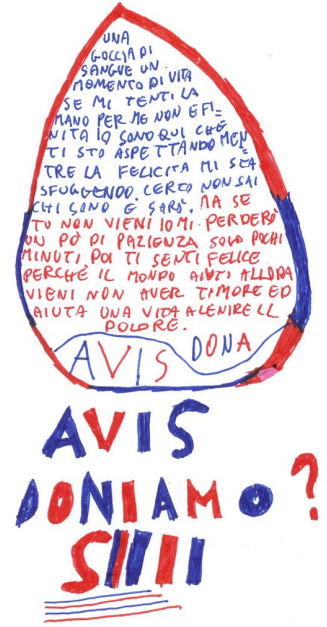 UNA
GOCCIA DI
SANGUE UN
MOMENTO DI VITA
SE MI TENTI LA
MANO PER ME NON E FI=
NITA IO SONO QUI CHE
TI STO ASPETTANDO MEN
TRE LA FELICITA MI STA
SFUGGENDO. CERTO NON SAI
CHI SONO E SARÒ. MA SE
TU NON VIENI IO MI PERDERÒ
UN PÒ DI PAZIENZA SOLO POCHI
MINUTI, POI TI SENTI FELICE
PERCHÉ IL MONDO AIUTI ALLORA
VIENI NON AVER TIMORE ED
AIUTA UNA VITA A LENIRE IL
DOLORE.
AVIS DONA
AVIS
DONIAMO?
SIIIII